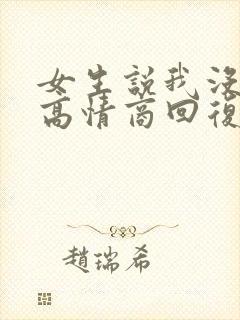 女生說我沒
高情商回復
趙瑞希